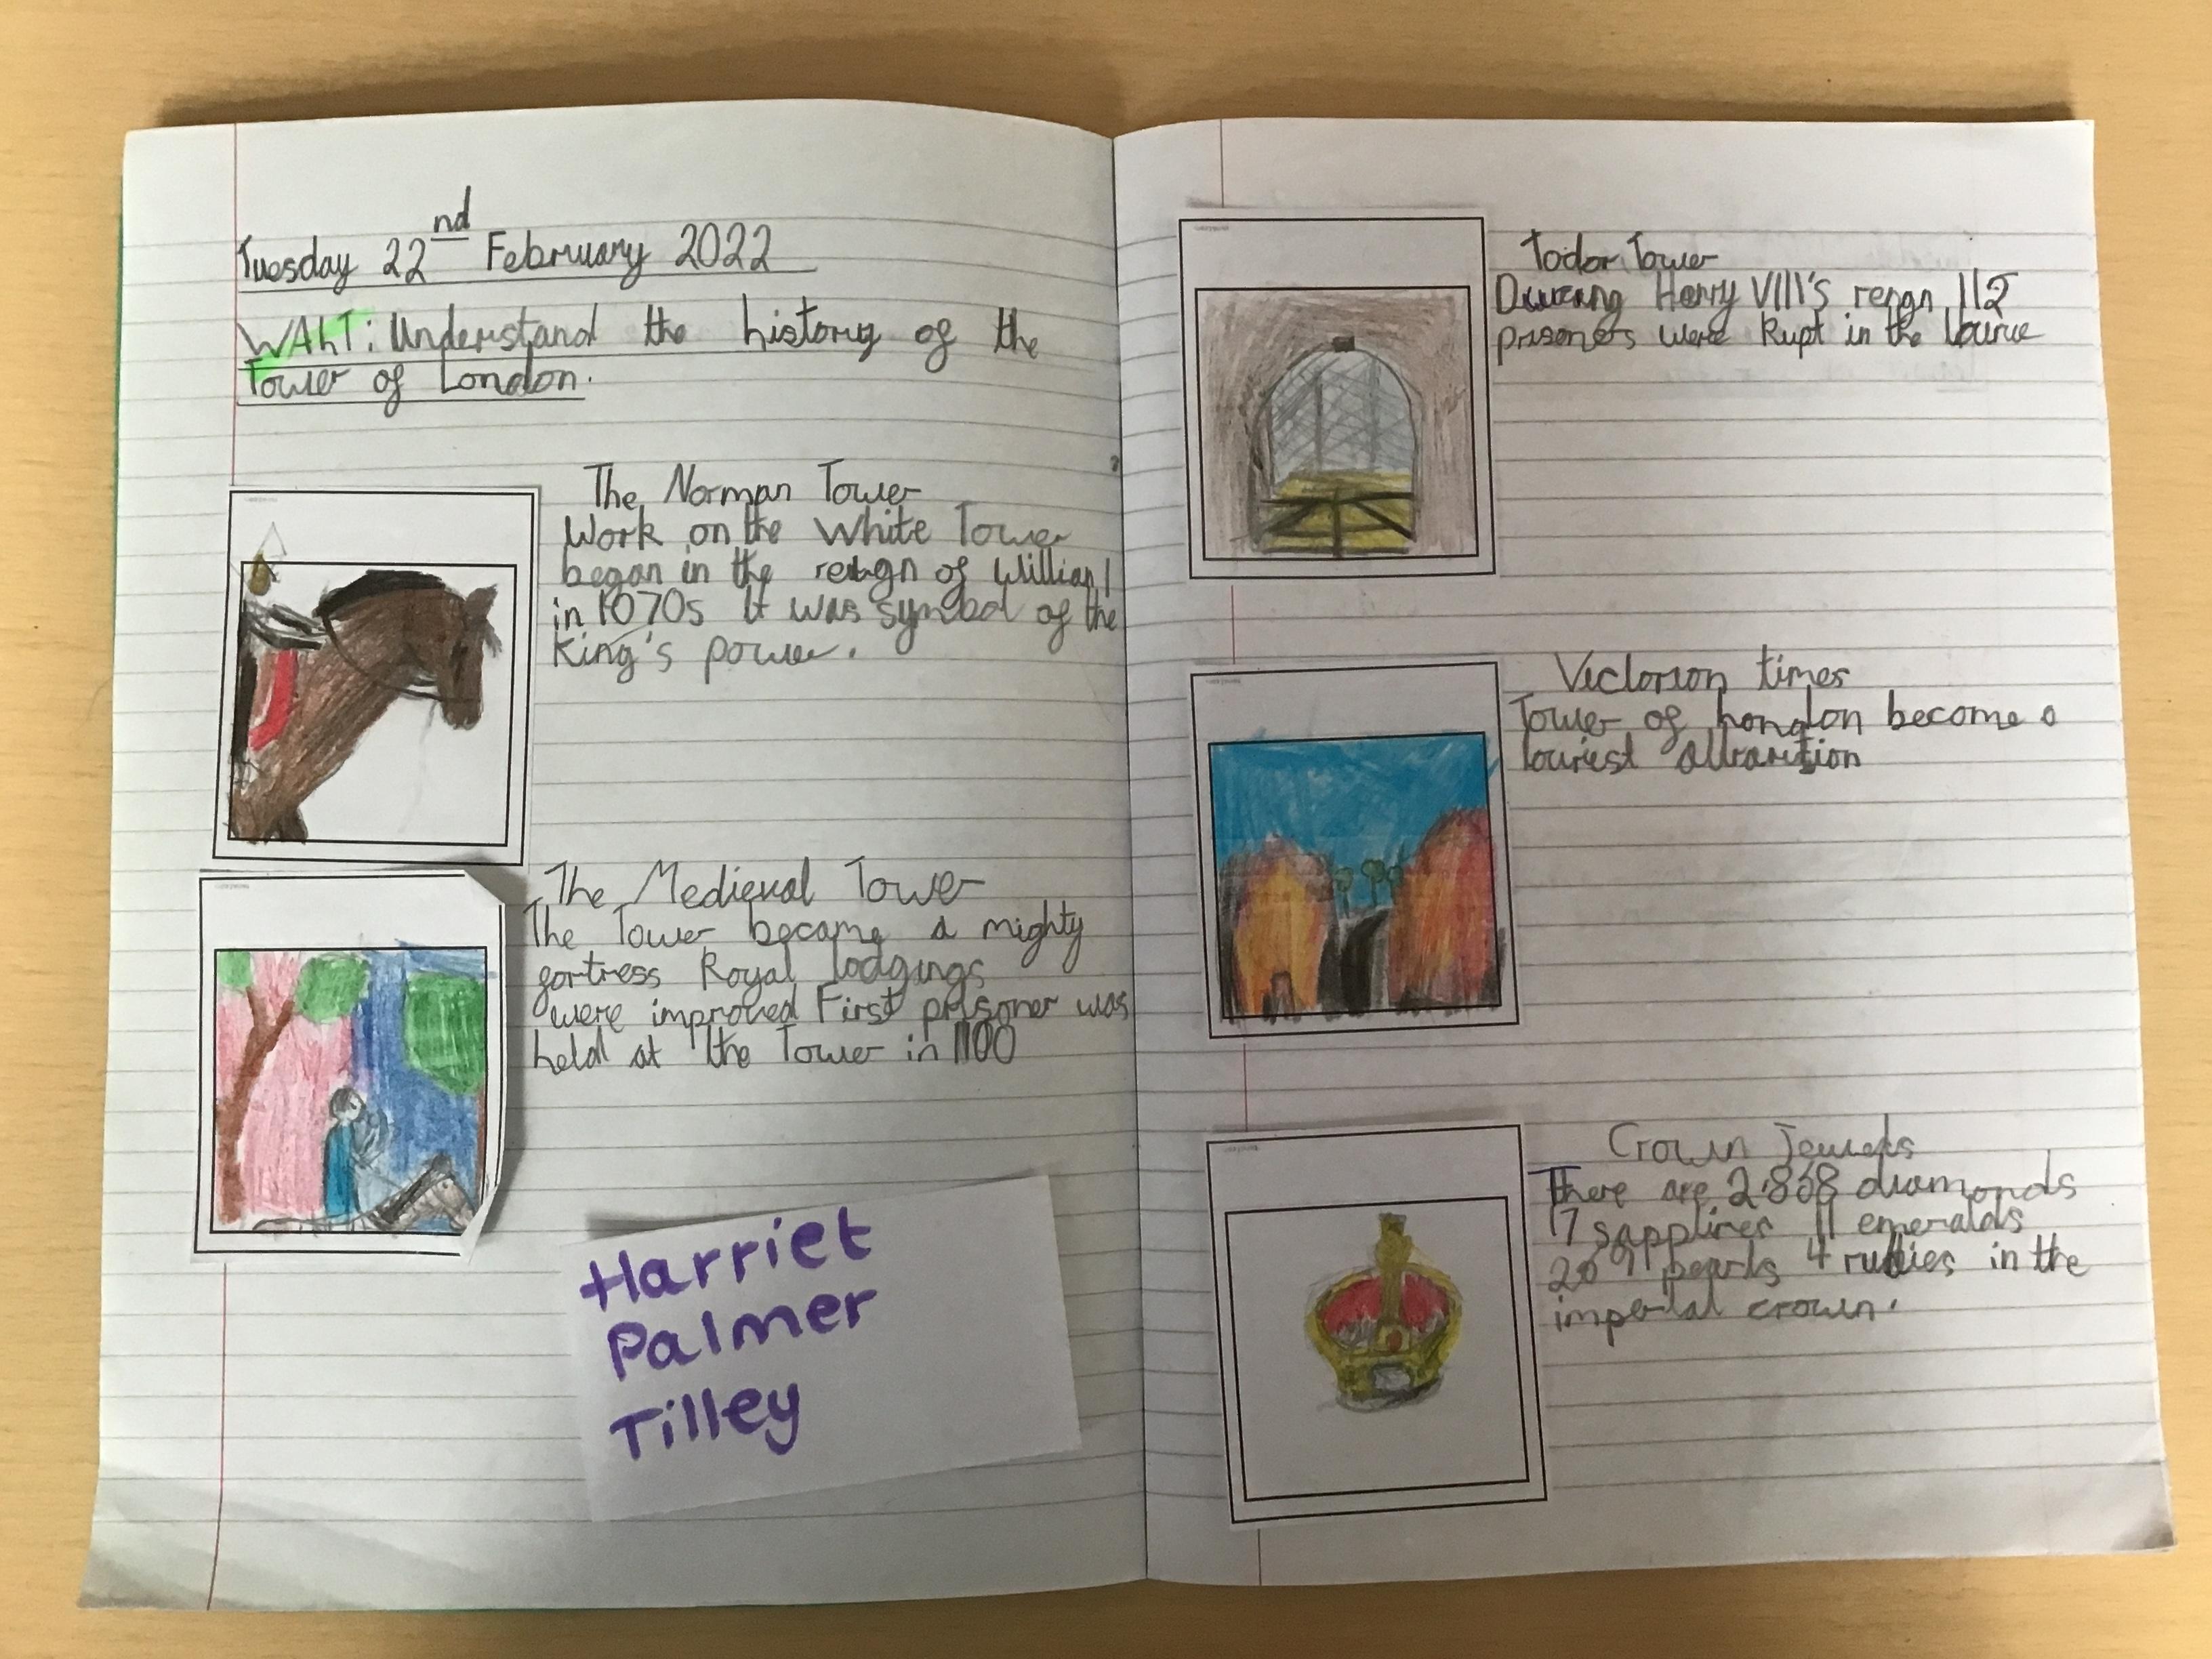 Tuesday 22nd February 2022
WALT: Understand the history of the
Tower of London.
The Norman Tower
Work on the White Tower
began in the reign of William 1
in 1070s It was symbol of the
King's power.
The Medieval Tower
The Tower became a mighty
fortress Royal lodgings
were improved First prisoner was
held at the Tower in 1100
Harriet
Palmer
Tilley
Todor Tower
Henry VIII's reign 112
prisoners were kupt in the
Victorion times
Tower of London become a
tourist
Crown Jewels
There are 2.868 diamonds
17 sapplires 11 emeralds
269 pearls 4 rubies in the
imperial crown.